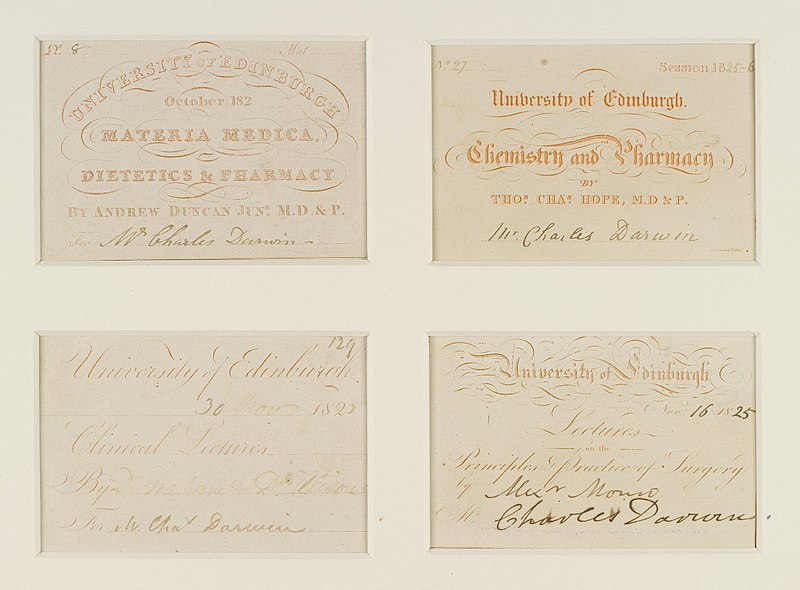 No. 8
Mat
UNIVERSITY OF EDINBURGH
October 182
MATERIA MEDICA,
DIETETICS & PHARMACY
BY ANDREW DUNCAN JUNR. M.D. & P.
For Mr Charles Darwin
No. 27
Session 1825-6
University of Edinburgh.
Chemistry and Pharmacy
BY
THOS. CHAS. HOPE, M.D & P.
Mr. Charles Darwin
129
University of Edinburgh.
30 Nov 1825
Clinical Lectures
By Dr Graham & Dr
For Mr Chas Darwin
University of Edinburgh
Novr 16 1825
Lectures
on the
Principles & Practice of Surgery
by Alexr Monro
Mr Charles Darwin.